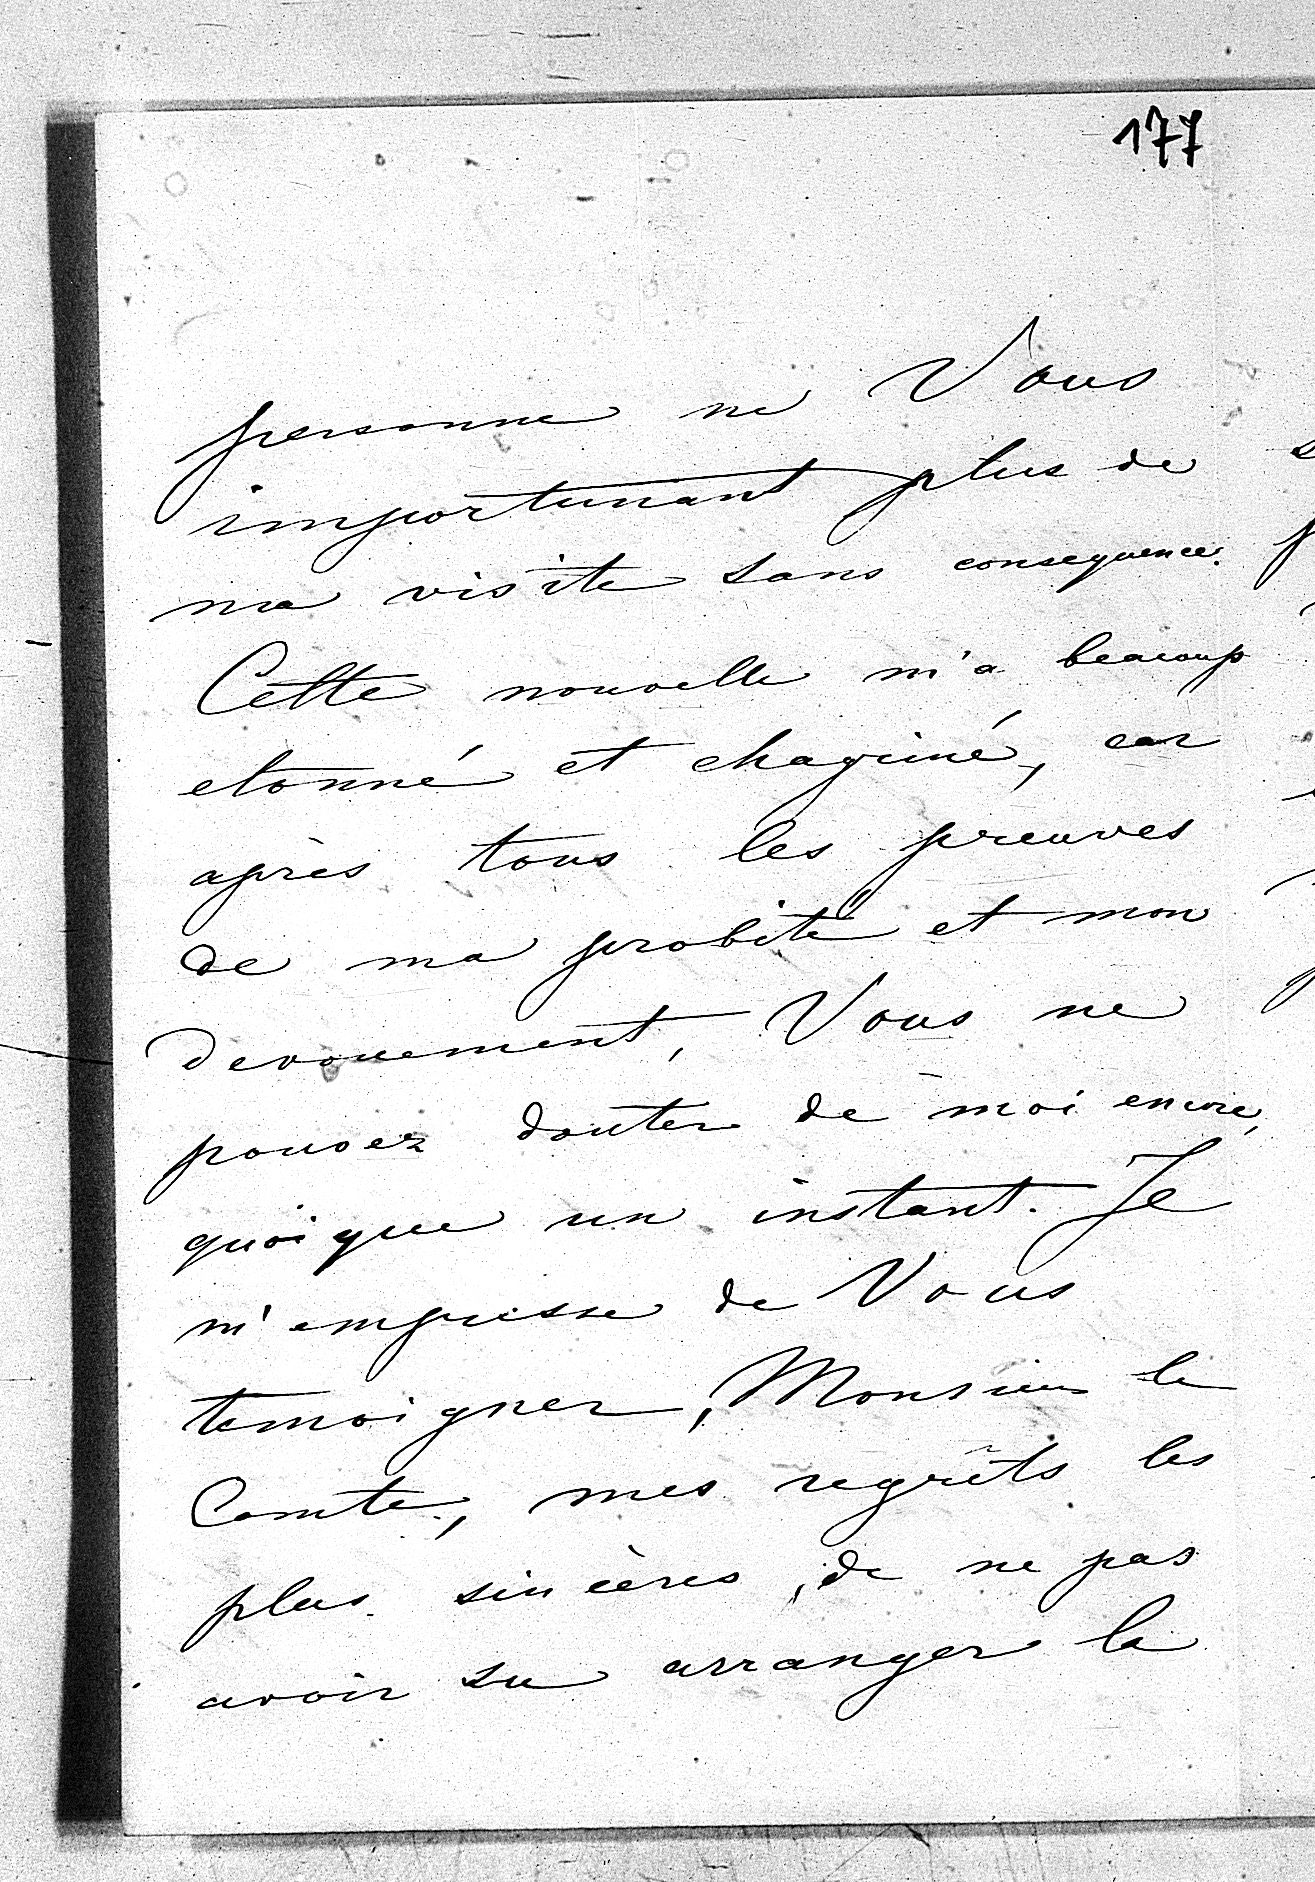 177
personne ne Vous
importunant plus de
ma visite sans consequence.
Cette nouvelle m'a beacoup
etonné et chagriné, car
après tous les preuves
de ma probité et mon
devouement, Vous ne
pouvez douter de moi encore,
quoique un instant. Je
m'empresse de Vous
temoigner, Monsieur le
Comte, mes regrêts les
plus sincères, de ne pas
avoir su arranger la